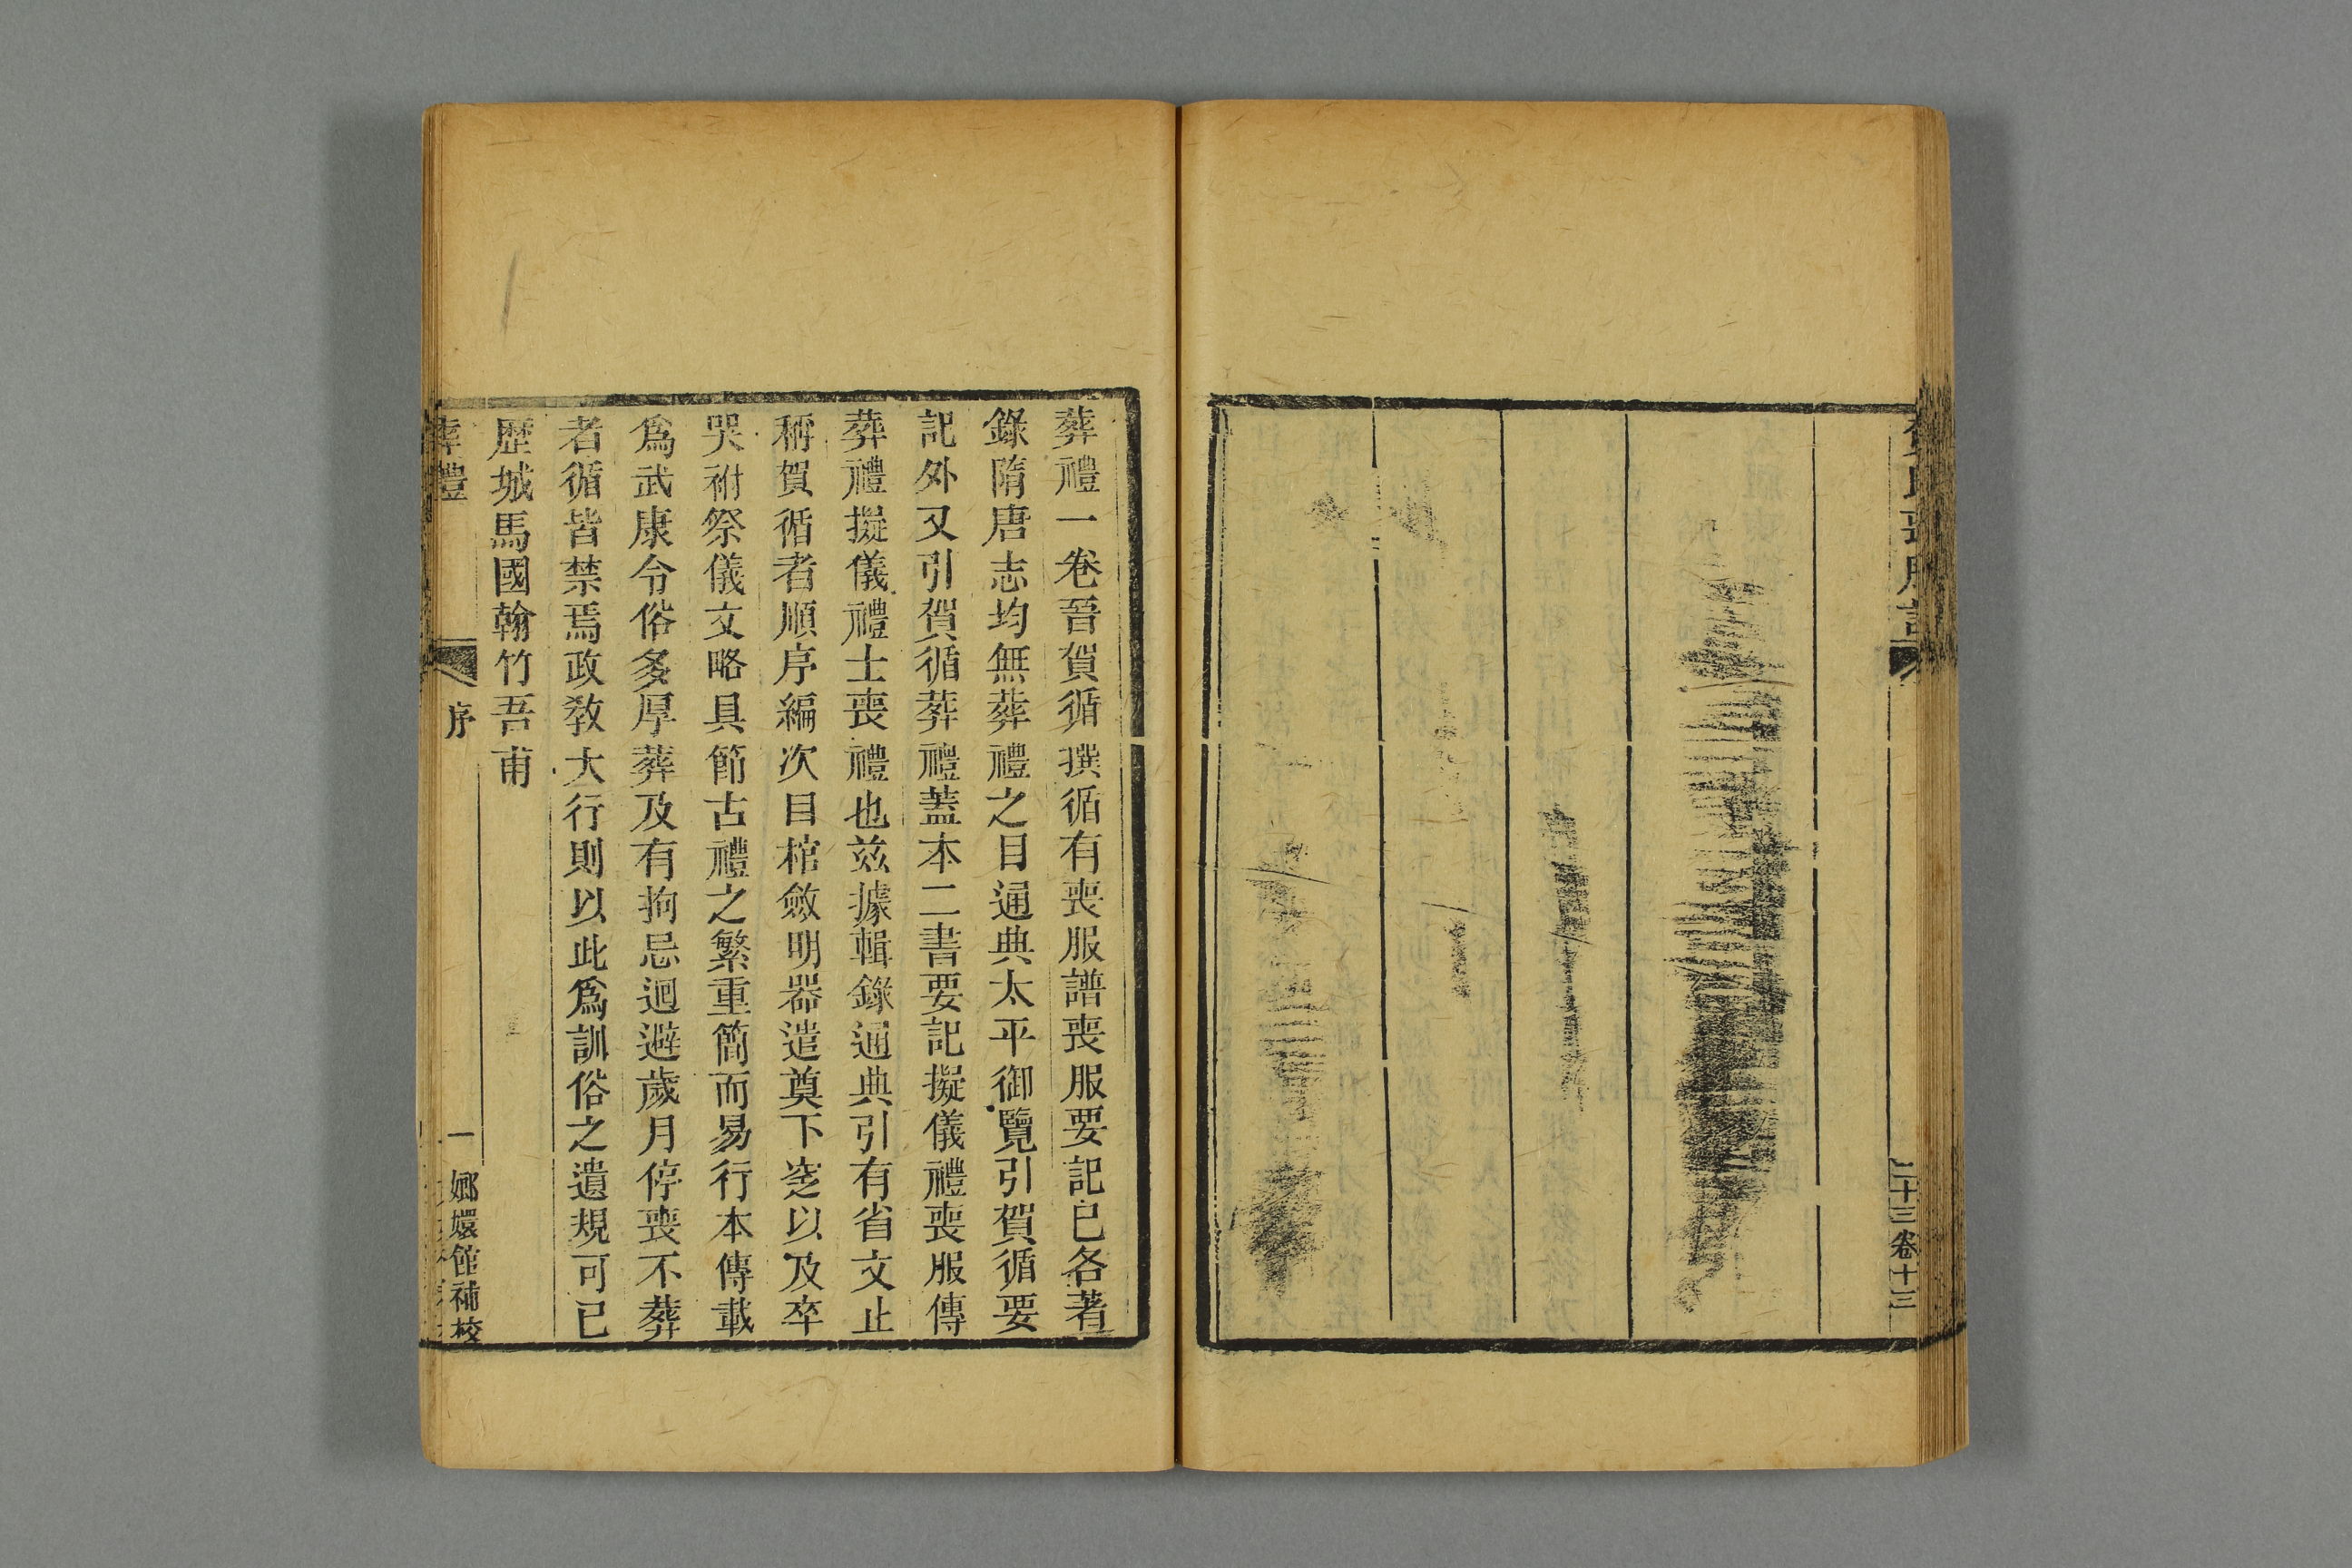 二十三 卷十三
葬禮一卷晉賀循撰循有喪服譜喪服要記已各著
錄隋唐志均無葬禮之目通典太平御覽引賀循要
記外又引賀循葬禮蓋本二書要記擬儀禮喪服傳
葬禮擬儀禮士喪禮也茲據輯錄通典引有省文止
稱賀循者順序編次目棺斂明器遣奠下窆以及卒
哭祔祭儀文略具節古禮之繁重簡而易行本傳載
爲武康令俗多厚葬及有拘忌迴避歲月停喪不葬
者循皆禁焉政教大行則以此爲訓俗之遺規可已
歷城馬國翰竹吾甫
葬禮 序 一 嫏嬛館補校